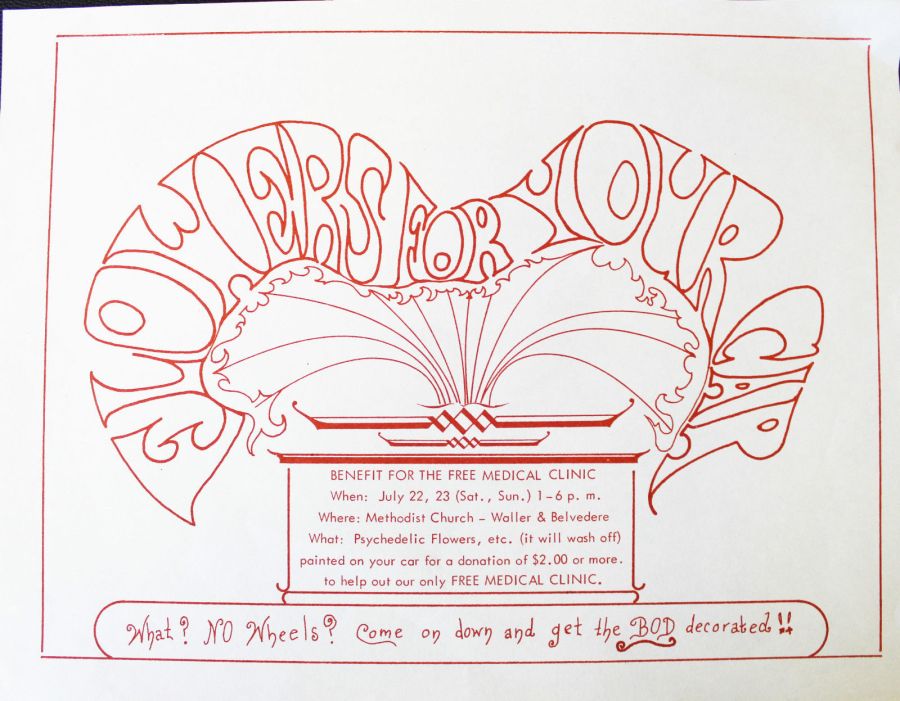 FLOWERS FOR YOUR CAR
BENEFIT FOR THE FREE MEDICAL CLINIC
When: July 22, 23 (Sat., Sun.) 1-6 p. m.
Where: Methodist Church - Waller & Belvedere
What: Psychedelic Flowers, etc. (it will wash off)
painted on your car for a donation of $2.00 or more.
to help out our only FREE MEDICAL CLINIC.
What? NO Wheels? Come on down and get the BOD decorated!!